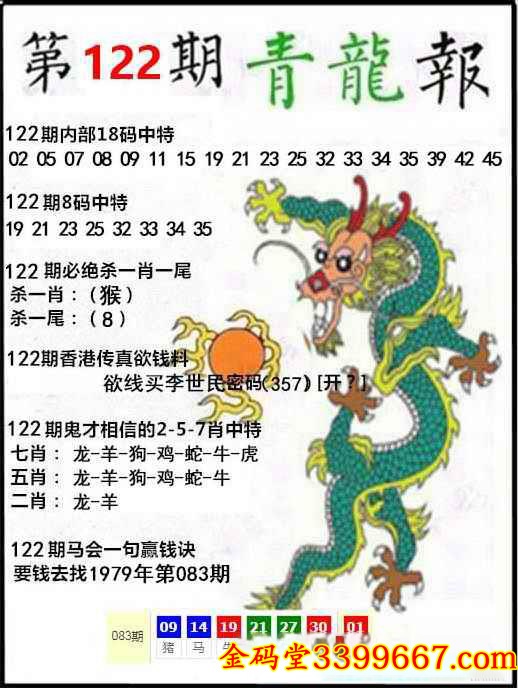 第122期青龍報
122期内部18码中特
02 05 07 08 09 11 15 19 21 23 25 32 33 34 35 39 42 45
122期8码中特
19 21 23 25 32 33 34 35
122期必绝杀一肖一尾
杀一肖：(猴)
杀一尾：(8)
122期香港传真欲钱料
欲线买李世民密码(357) [开?]
122期鬼才相信的2-5-7肖中特
七肖：龙-羊-狗-鸡-蛇-牛-虎
五肖：龙-羊-狗-鸡-蛇-牛
二肖：龙-羊
122期马会一句赢钱诀
要钱去找1979年第083期
083期 09 14 19 21 27 30 01
猪 马
金码堂3399667.com